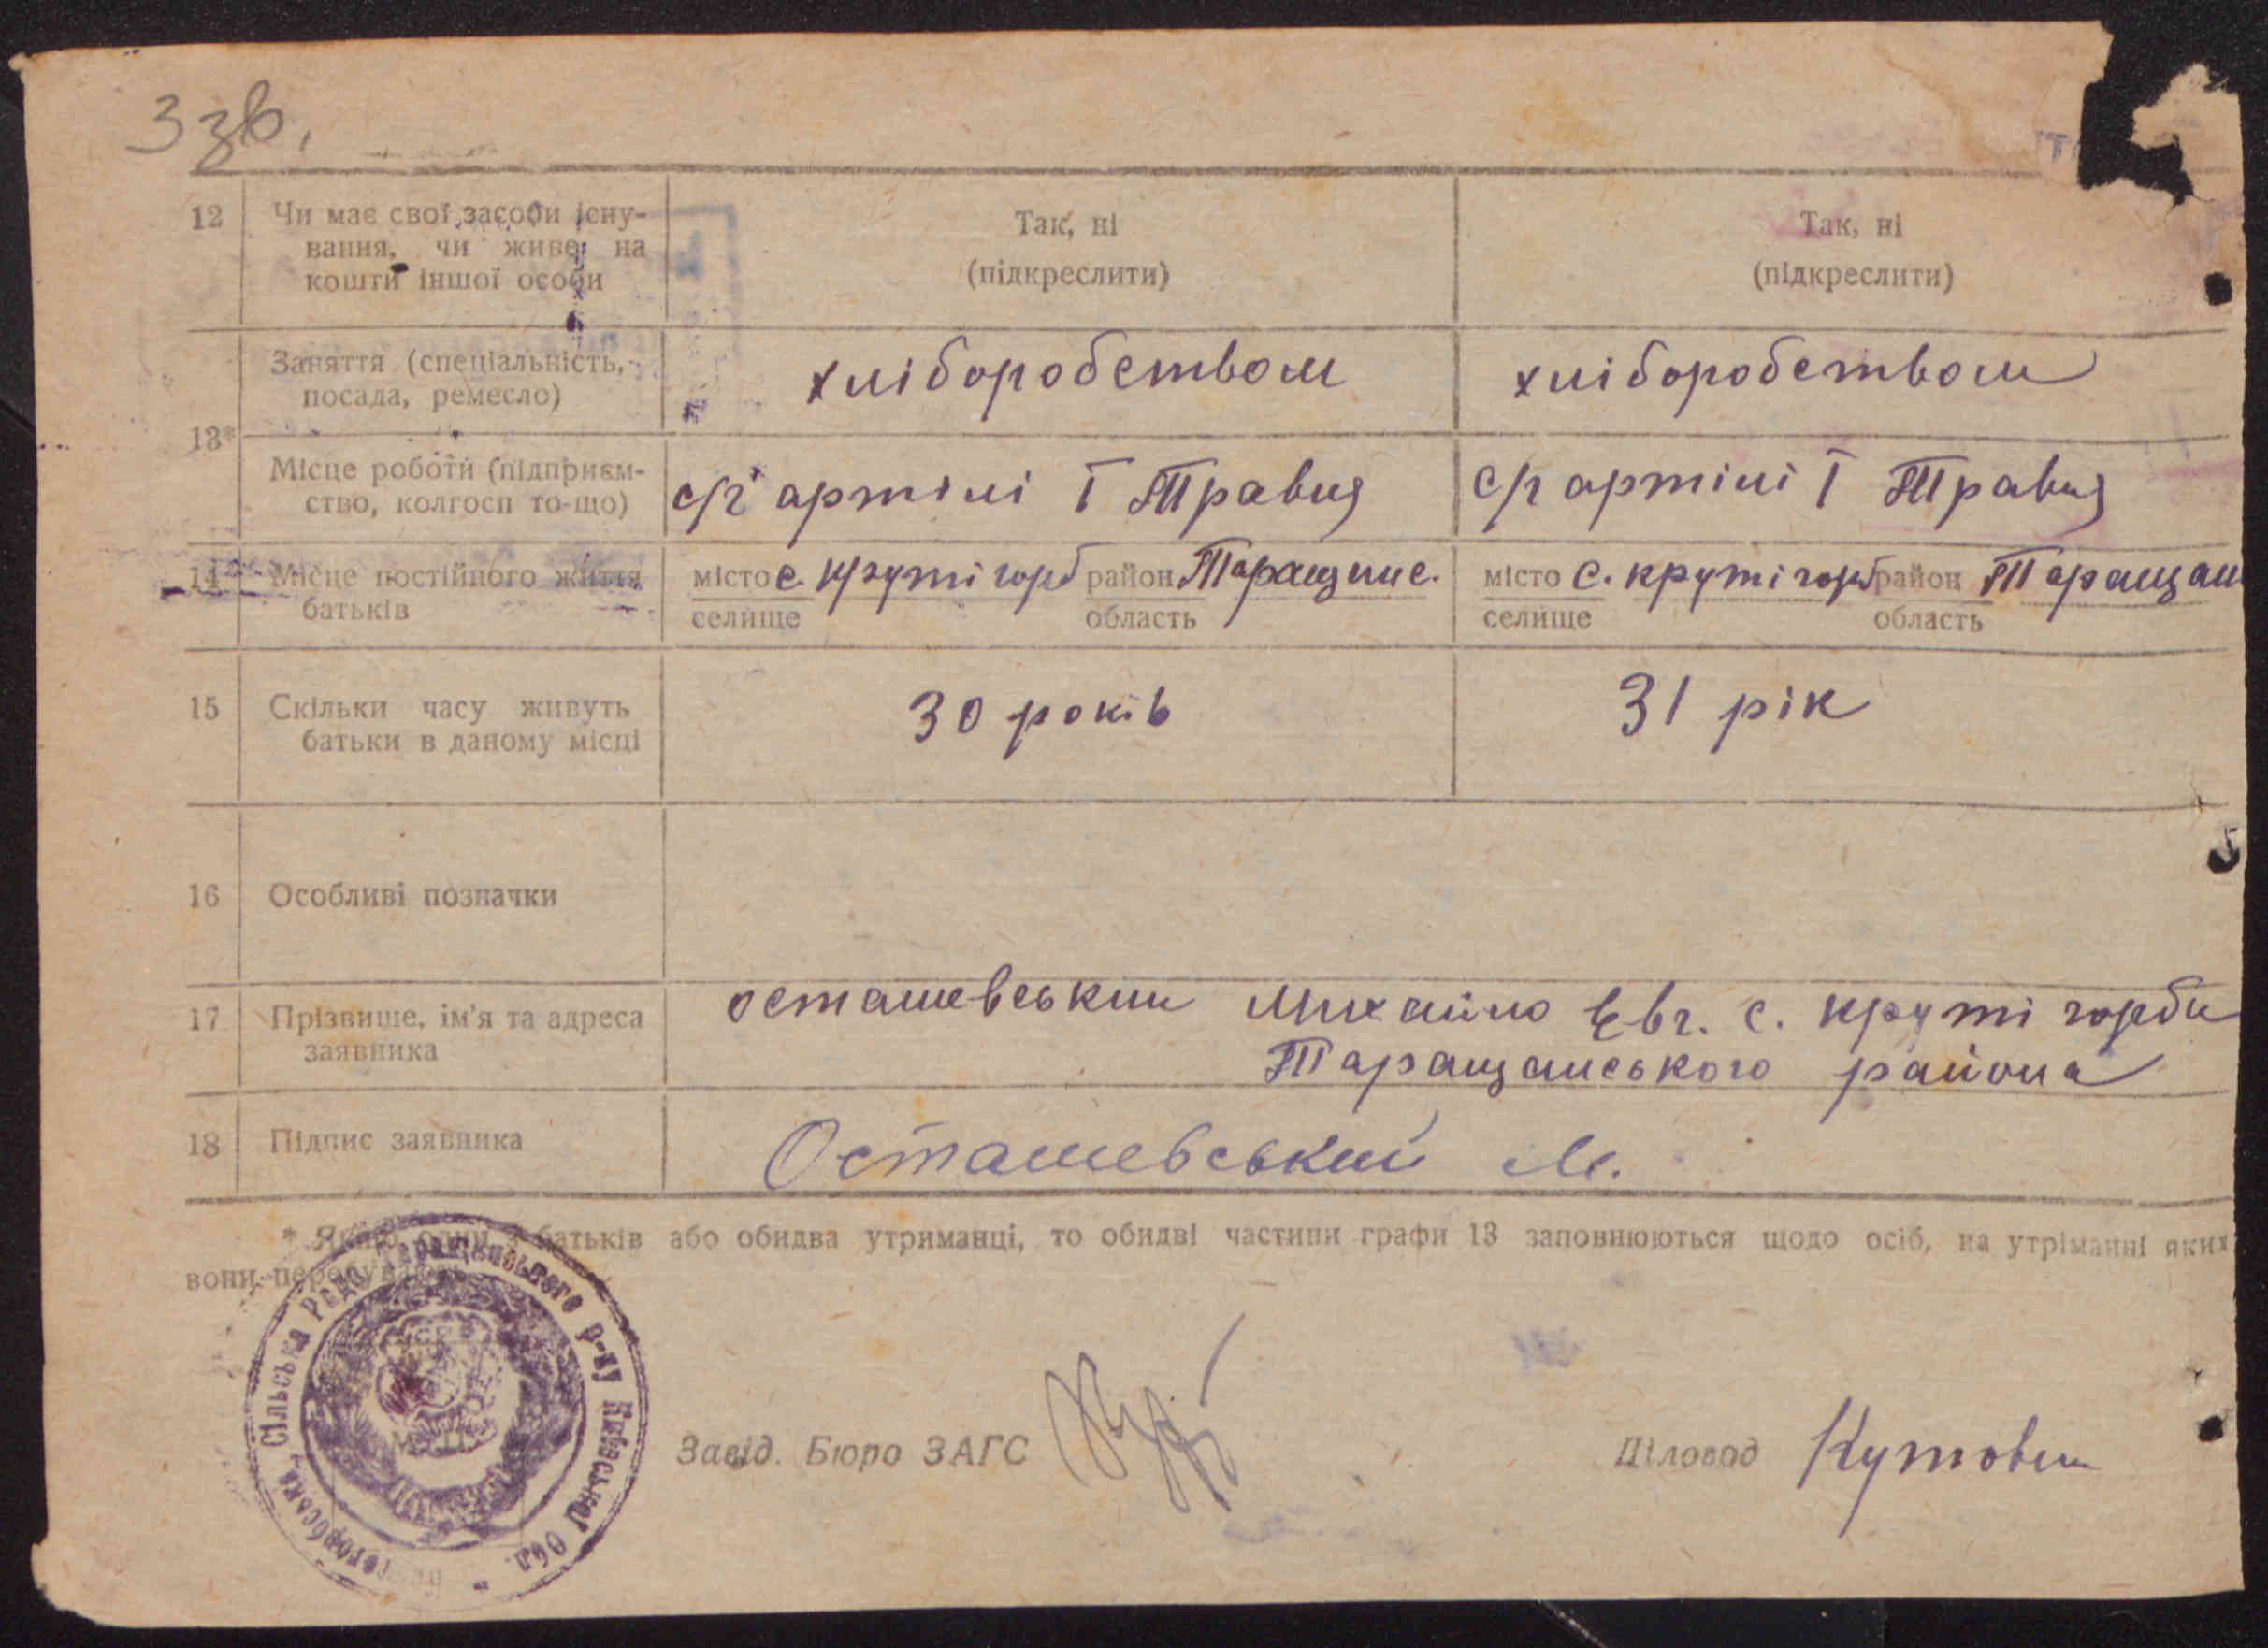 3 зв.
12 Чи має свої засоби існу-
вання, чи живе на
кошти іншої особи
Так, ні
(підкреслити)
Так, ні
(підкреслити)
13*
Заняття (спеціальність,
посада, ремесло)
хліборобством
хліборобством
Місце роботи (підприєм-
ство, колгосп то-що)
с/г артілі І Травня
с/г артілі І Травня
14 Місце постійного життя
батьків
місто с. круті горб район Таращанс.
селище область
місто с. круті горб район Таращан
селище область
15 Скільки часу живуть
батьки в даному місці
30 років
31 рік
16 Особливі позначки
17 Прізвище, ім'я та адреса
заявника
осташевський Михайло Євг. с. круті горби
Таращанського района
18 Підпис заявника
Осташевський М.
* Якщо один з батьків або обидва утриманці, то обидві частини графи 13 заповнюються щодо осіб, на утріманні яких
вони перебувають
Сільська Рада Таращанського р-ну Київської Обл.
Завід. Бюро ЗАГС
Діловод Кутовий